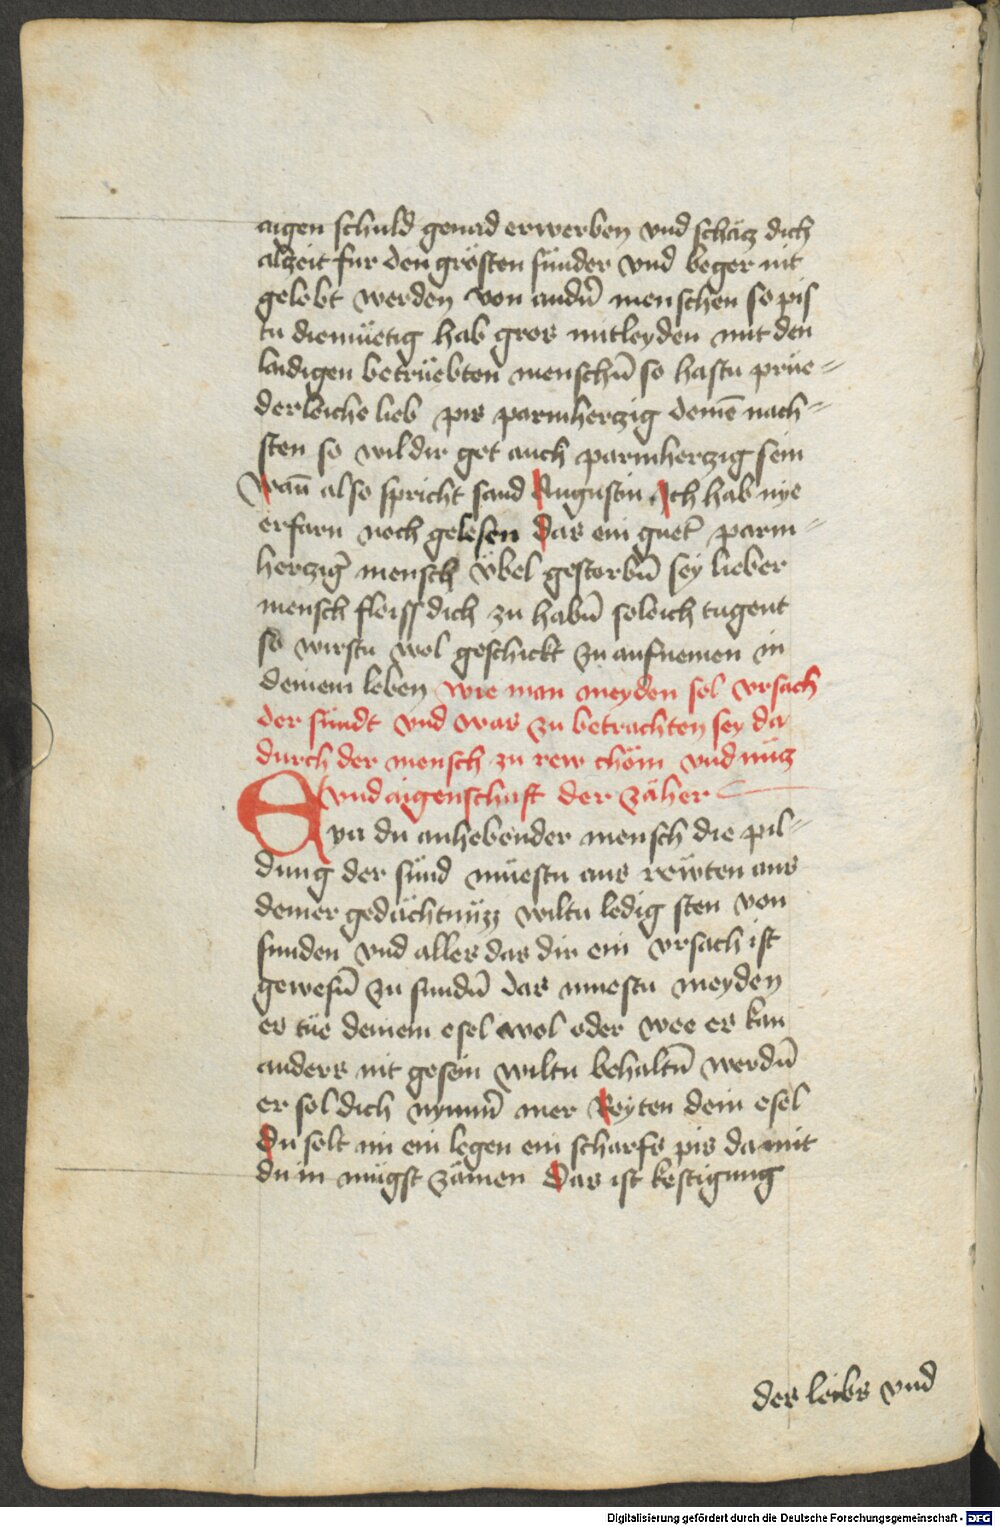 aigen schuld genad erwerben vnd schäcz dich
alczeit fur den grösten sünder vnd beger nit
gelobt werden von andn̄ menschen so pis
tu diemüetig hab gros mitleyden mit den
laidigen betrüebten menschn̄ so hastu prüe=
derleiche lieb pis parmherczig deinē nach=
sten so wil dir got auch parmherczig sein
Wan̄ also spricht sand Augustin Ich hab nye
erfarn noch gelesen das ein guet̄ parm=
hercziḡ mensch übel gestorbn̄ sey lieber
mensch fleiss dich zu habn̄ soleich tugent
so wirstu wol geschickt zu aufnemen in
deinem leben wie man meyden sol vrsach
der sündt vnd was zu betrachten sey da
durch der mensch zu rew chöm vnd nücz
vnd aigenschaft der zäher
Eya du anhebender mensch die pil=
dung der sünd müestu aus rewten aus
deiner gedächtnüzz wiltu ledig sten von
sunden vnd alles das dir ein vrsach ist
gewesn̄ zu sundn̄ das muestu meyden
es tüe deinem esel wol oder wee es kan
anders nit gesein wiltu behaltn̄ werdn̄
er sol dich nymm̄ mer Reyten dein esel
Du solt im ein legen ein scharfs pis damit
du in mügst zämen Das ist kestigung
des leibs vnd
Digitalisierung gefördert durch die Deutsche Forschungsgemeinschaft - DFG